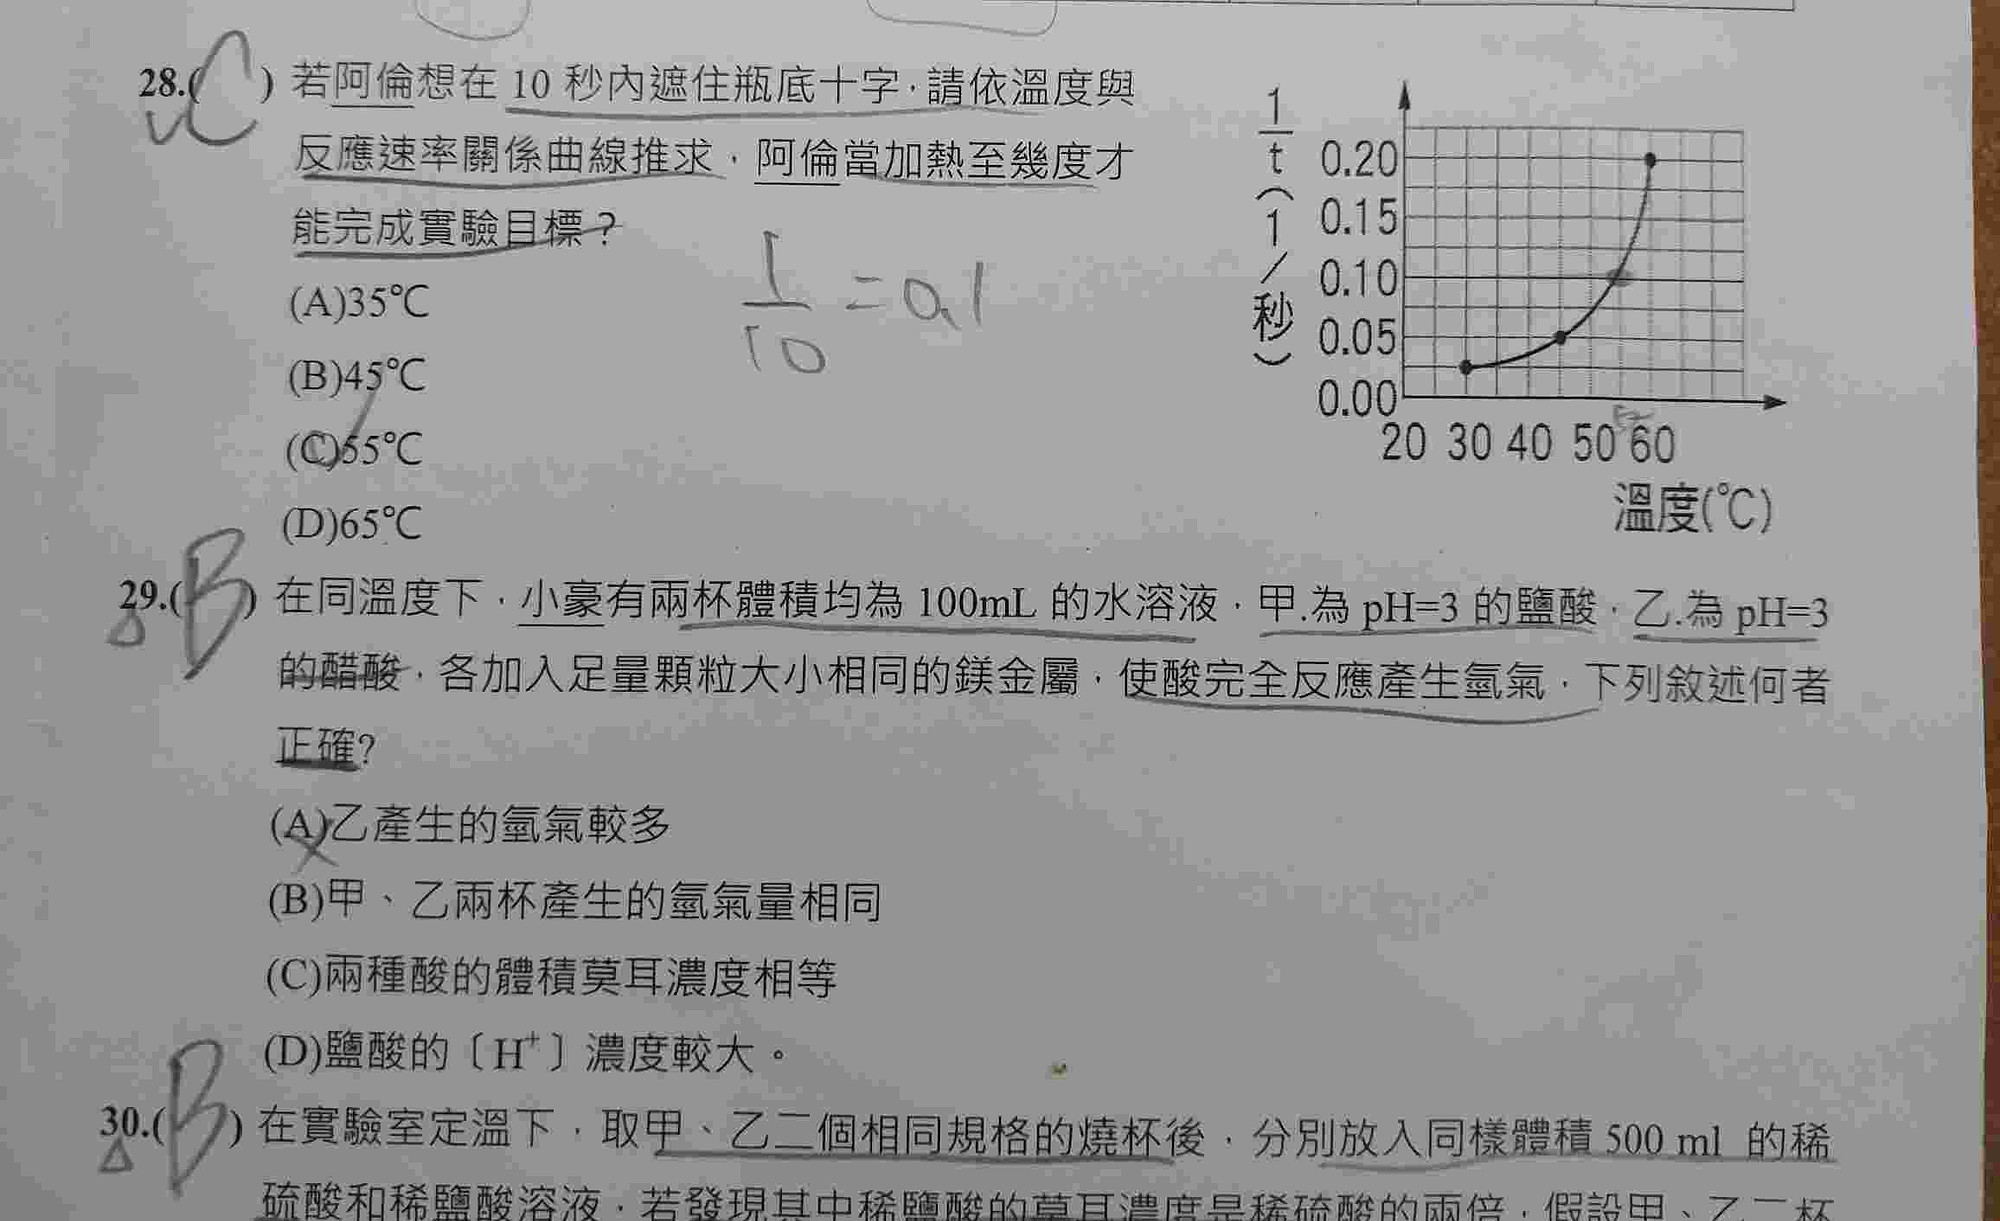 28.(C) 若阿倫想在 10 秒內遮住瓶底十字，請依溫度與
反應速率關係曲線推求，阿倫當加熱至幾度才
能完成實驗目標？
(A)35℃
(B)45℃
(C)55℃
(D)65℃
1/10 = 0.1
1/t (1/秒)
0.20
0.15
0.10
0.05
0.00
20 30 40 50 60
溫度(℃)
29.(B) 在同溫度下，小豪有兩杯體積均為 100mL 的水溶液，甲.為 pH=3 的鹽酸，乙.為 pH=3
的醋酸，各加入足量顆粒大小相同的鎂金屬，使酸完全反應產生氫氣，下列敘述何者
正確?
(A)乙產生的氫氣較多
(B)甲、乙兩杯產生的氫氣量相同
(C)兩種酸的體積莫耳濃度相等
(D)鹽酸的〔H⁺〕濃度較大。
30.(B) 在實驗室定溫下，取甲、乙二個相同規格的燒杯後，分別放入同樣體積 500 ml 的稀
硫酸和稀鹽酸溶液，若發現其中稀鹽酸的莫耳濃度是稀硫酸的兩倍，假設甲、乙二杯